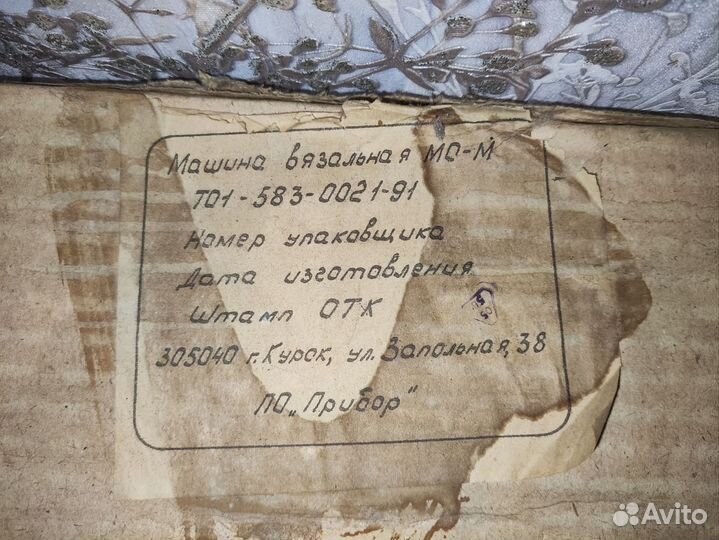 Машина вязальная МО-М
Т01-583-0021-91
Номер упаковщика
Дата изготовления
Штамп ОТК
305040 г. Курск, ул. Запольная, 38
ПО „Прибор"
Avito